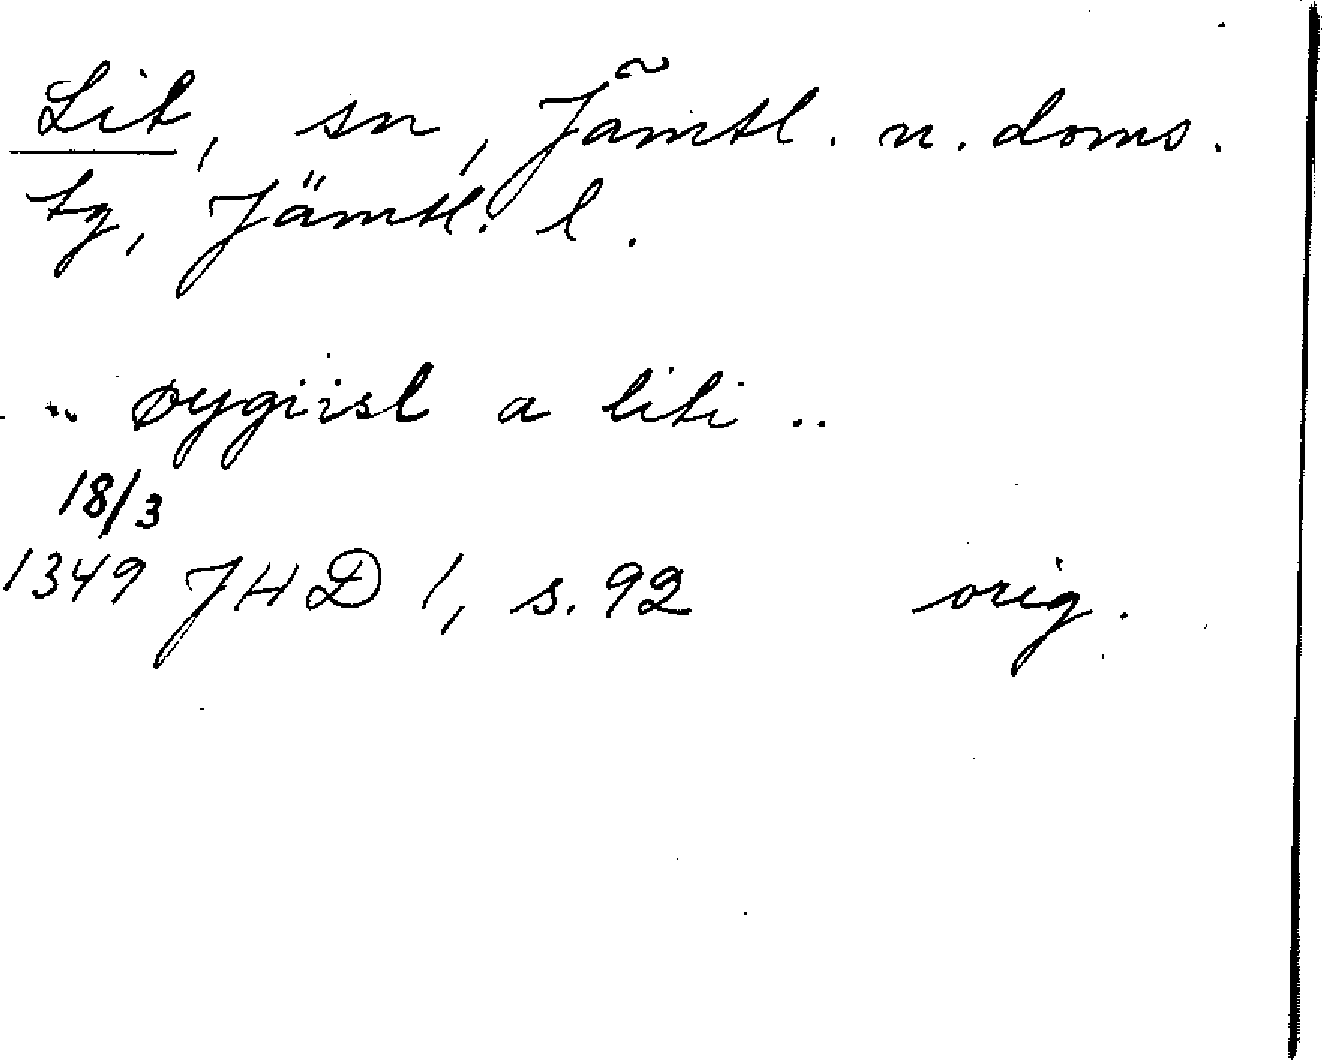 Lit, sn, Jämtl. n. doms.
tg, Jämtl. l.
.. øygiisl a liti ..
18/3
1349 JHD 1, s. 92 orig.